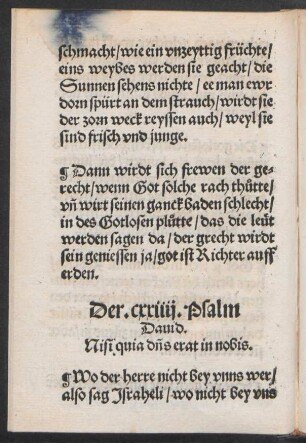 schmacht/wie ein vnzeyttig früchte/
eins weybes werden sie geacht/die
Sunnen sehens nichte/ee man ewr
dorn spürt an dem strauch/wirdt sie
der zorn weck reyssen auch/weyl sie
sind frisch vnd junge.
¶Dann wirdt sich frewen der ge-
recht/wenn Got solche rach thütte/
vñ wirt seinen ganck baden schlecht/
in des Gotlosen plütte/das die leüt
werden sagen da/der grecht wirdt
sein geniessen ja/got ist Richter auff
erden.
Der.cxxiiij.Psalm
Dauid.
Nisi quia dñs erat in nobis.
¶Wo der herre nicht bey vnns wer/
also sag Israheli/wo nicht bey vns